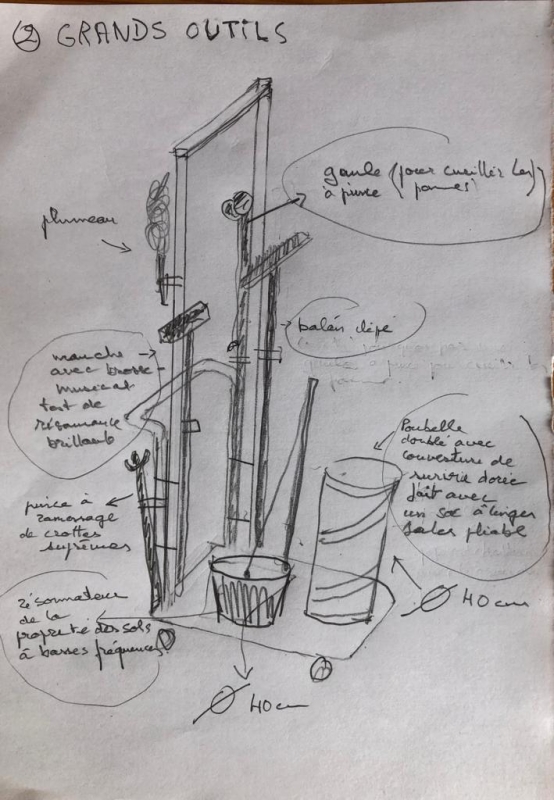 ② GRANDS OUTILS
gaule (pour cueillir les
à pince pommes)
plumeau
balais
manche
avec brosse
musical
tout de
résonnance
brillante
Poubelle
doublé avec
couverture de
survie dorée
fait avec
un sac à linges
sales pliable
pince à
ramassage
de crottes
suprêmes
Ø 40 cm
résonnateur
de la
propreté des sols
à basses fréquences
Ø 40 cm